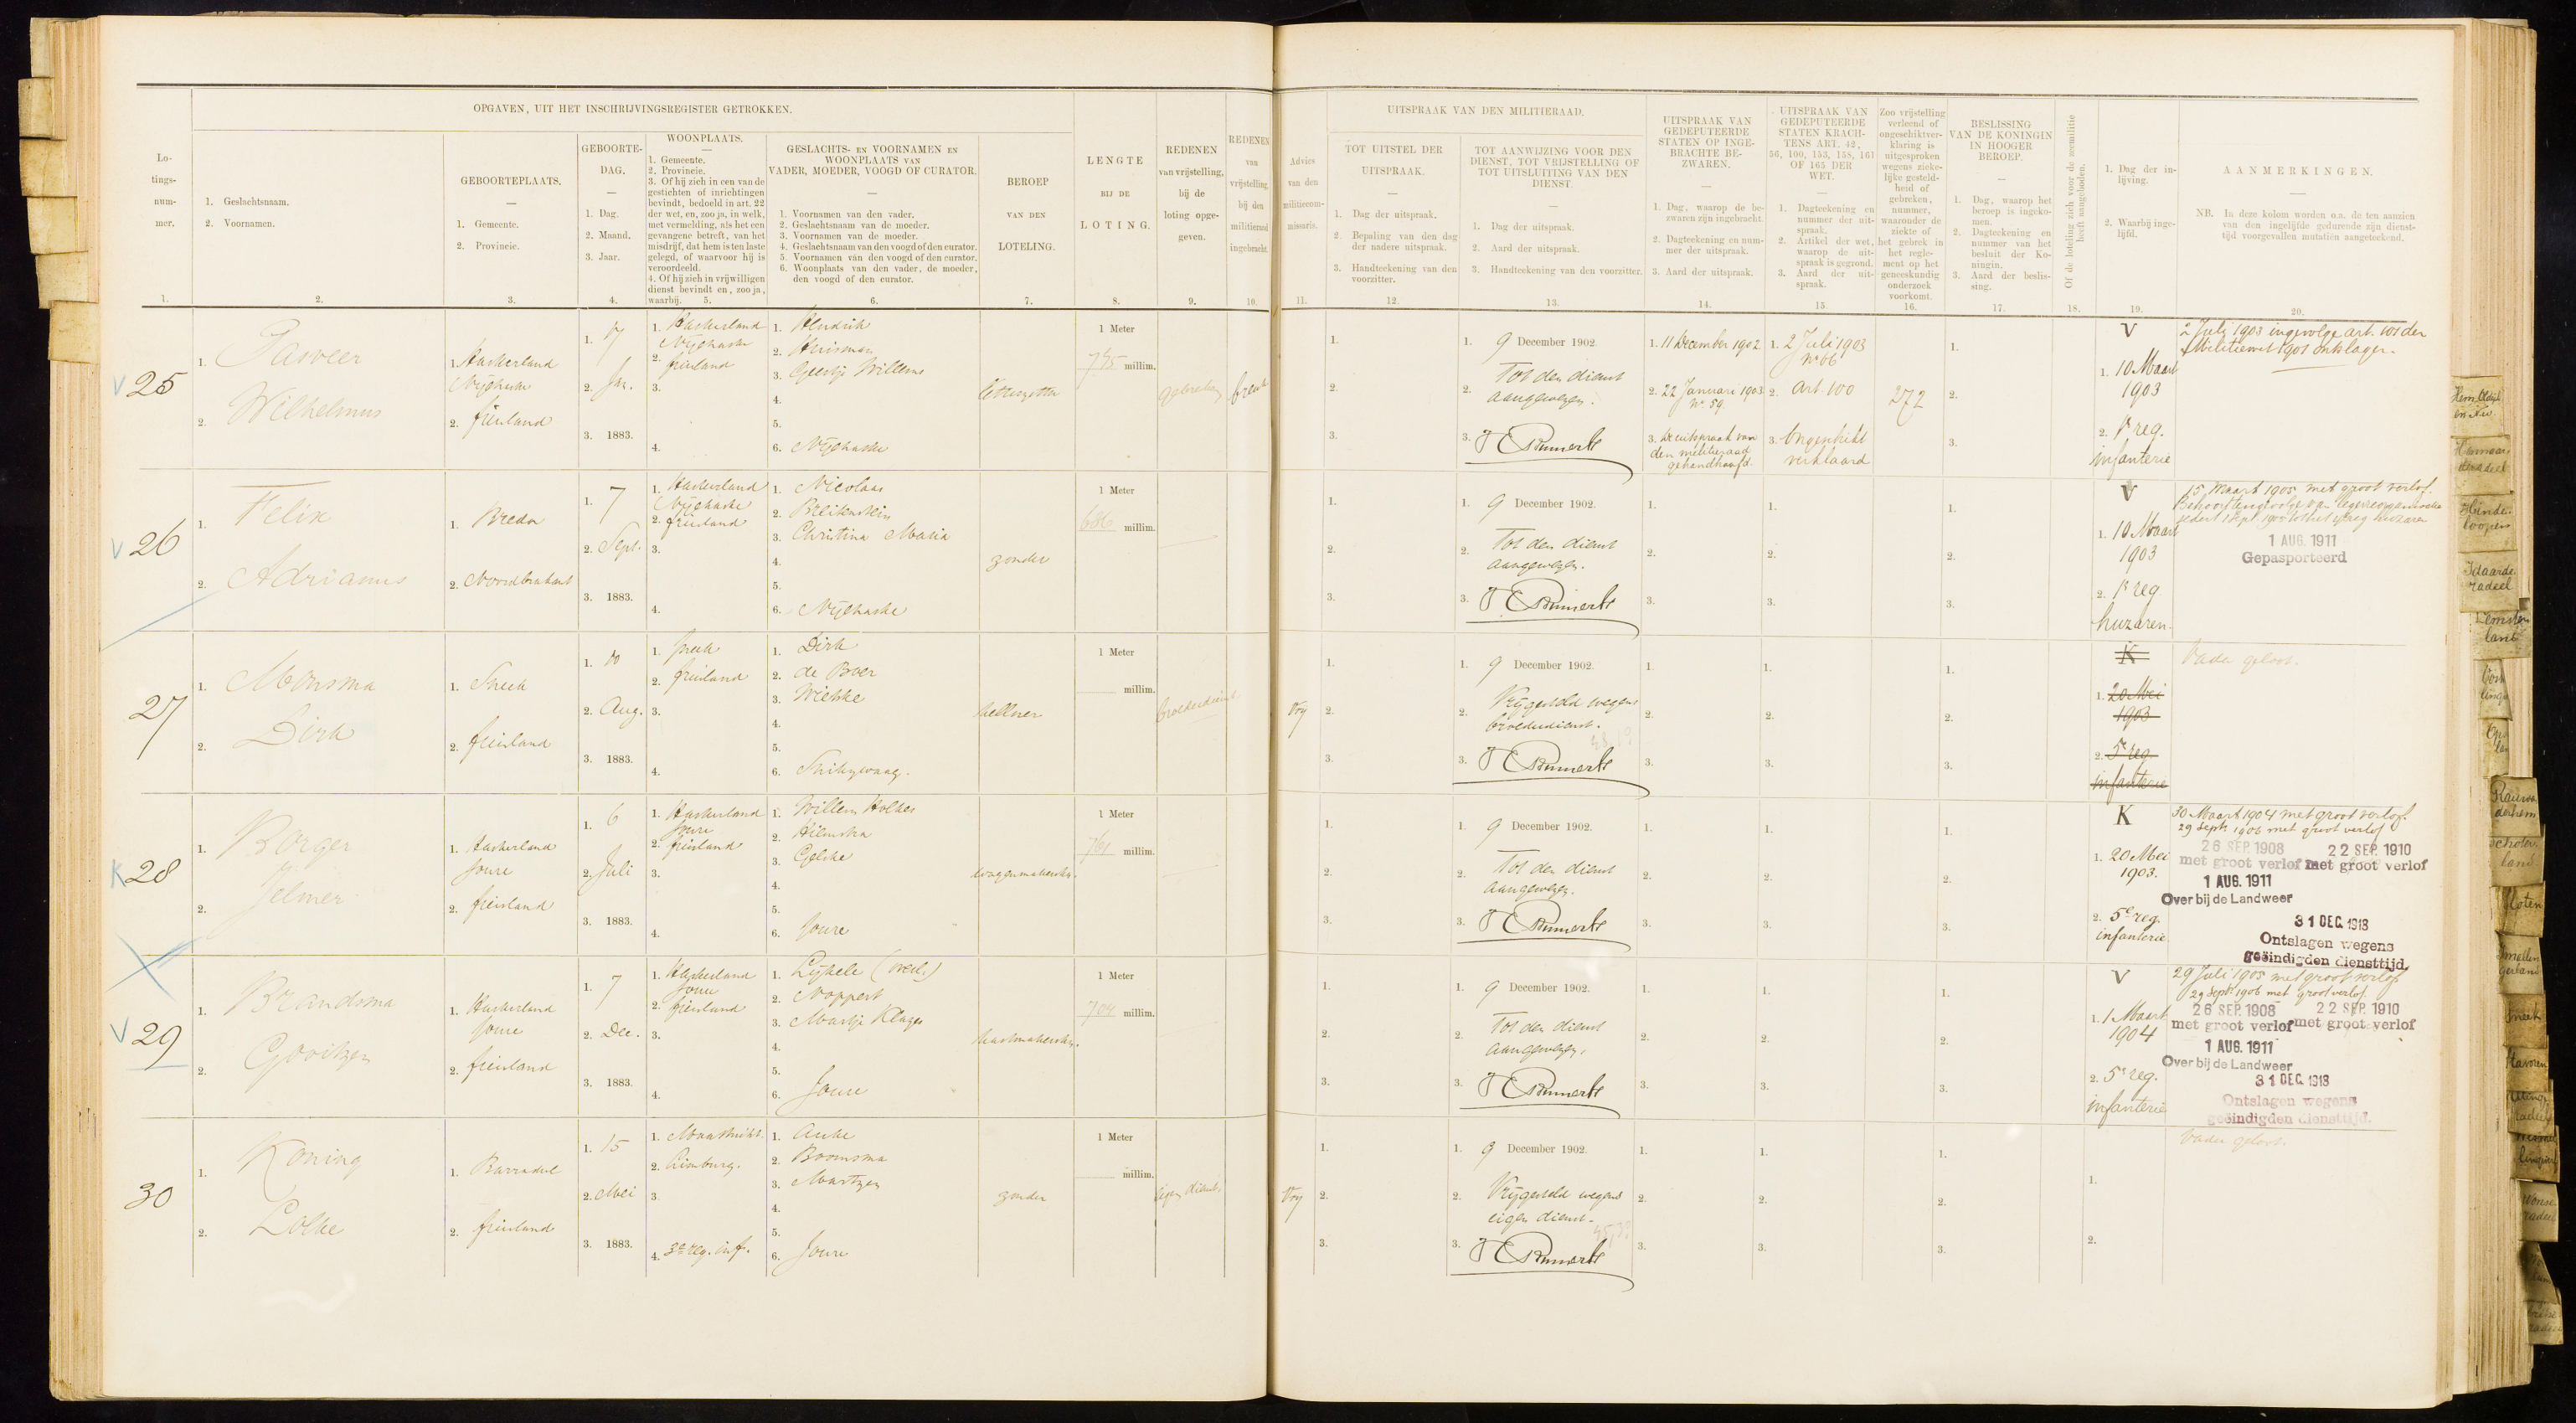 OPGAVEN, UIT HET INSCHRIJVINGSREGISTER GETROKKEN.
Lo-
tings-
num-
mer.
1.
1. Geslachtsnaam.
2. Voornamen.
2.
GEBOORTEPLAATS.
1. Gemeente.
2. Provincie.
3.
GEBOORTE-
DAG.
1. Dag.
2. Maand.
3. Jaar.
4.
WOONPLAATS.
1. Gemeente.
2. Provincie.
3. Of hij zich in een van de
gestichten of inrichtingen
bevindt, bedoeld in art. 22
der wet, en, zoo ja, in welk,
met vermelding, als het een
gevangene betreft, van het
misdrijf, dat hem is ten laste
gelegd, of waarvoor hij is
veroordeeld.
4. Of hij zich in vrijwilligen
dienst bevindt en, zoo ja,
waarbij. 5.
GESLACHTS- EN VOORNAMEN EN
WOONPLAATS VAN
VADER, MOEDER, VOOGD OF CURATOR.
1. Voornamen van den vader.
2. Geslachtsnaam van de moeder.
3. Voornamen van de moeder.
4. Geslachtsnaam van den voogd of den curator.
5. Voornamen van den voogd of den curator.
6. Woonplaats van den vader, de moeder,
den voogd of den curator.
6.
BEROEP
VAN DEN
LOTELING.
7.
LENGTE
BIJ DE
LOTING.
8.
REDENEN
van vrijstelling,
bij de
loting opge-
geven.
9.
REDENEN
van
vrijstelling,
bij den
militieraad
ingebracht.
10.
Advies
van den
militiecom-
missaris.
11.
UITSPRAAK VAN DEN MILITIERAAD.
TOT UITSTEL DER
UITSPRAAK.
1. Dag der uitspraak.
2. Bepaling van den dag
der nadere uitspraak.
3. Handteekening van den
voorzitter.
12.
TOT AANWIJZING VOOR DEN
DIENST, TOT VRIJSTELLING OF
TOT UITSLUITING VAN DEN
DIENST.
1. Dag der uitspraak.
2. Aard der uitspraak.
3. Handteekening van den voorzitter.
13.
UITSPRAAK VAN
GEDEPUTEERDE
STATEN OP INGE-
BRACHTE BE-
ZWAREN.
1. Dag, waarop de be-
zwaren zijn ingebracht.
2. Dagteekening en num-
mer der uitspraak.
3. Aard der uitspraak.
14.
UITSPRAAK VAN
GEDEPUTEERDE
STATEN KRACH-
TENS ART. 42,
56, 100, 153, 158, 161
OF 165 DER
WET.
1. Dagteekening en
nummer der uit-
spraak.
2. Artikel der wet,
waarop de uit-
spraak is gegrond.
3. Aard der uit-
spraak.
15.
Zoo vrijstelling
verleend of
ongeschiktver-
klaring is
uitgesproken
wegens zieke-
lijke gesteld-
heid of
gebreken,
nummer,
waaronder de
ziekte of
het gebrek in
het regle-
ment op het
geneeskundig
onderzoek
voorkomt.
16.
BESLISSING
VAN DE KONINGIN
IN HOOGER
BEROEP.
1. Dag, waarop het
beroep is ingeko-
men.
2. Dagteekening en
nummer van het
besluit der Ko-
ningin.
3. Aard der beslis-
sing.
17.
Of de loteling zich voor de zeemilitie
heeft aangeboden.
18.
1. Dag der in-
lijving.
2. Waarbij inge-
lijfd.
19.
AANMERKINGEN.
NB. In deze kolom worden o.a. de ten aanzien
van den ingelijfde gedurende zijn dienst-
tijd voorgevallen mutatiën aangeteekend.
20.
V 25
1. Pasveer
2. Wilhelmus
1. Haskerland
Nijehaske
2. Friesland
1. 17
2. Jan.
3. 1883.
1. Haskerland
Nijehaske
2. Friesland
3.
4.
1. Hendrik
2. Huisman
3. Geertje Willems
4.
5.
6. Nijehaske
letterzetter
1 Meter
715 millim.
gebreken
breuk
1.
2.
3.
1. 9 December 1902.
2. Tot den dienst
aangewezen.
3.
1. 11 December 1902.
2. 22 Januari 1903
No. 59
3. de uitspraak van
den militieraad
gehandhaafd.
1. 2 Juli 1903
No 66
2. Art. 100
3. Ongeschikt
verklaard
272
1.
2.
3.
V
1. 10 Maart
1903
2. 1e reg.
infanterie
2 Julij 1903 ingevolge art. 101 der
Militiewet 1901 ontslagen.
V 26
1. Felix
2. Adrianus
1. Breda
2. Noordbrabant
1. 7
2. Sept.
3. 1883.
1. Haskerland
Nijehaske
2. Friesland
3.
4.
1. Nicolaas
2. Breikenstein
3. Christina Maria
4.
5.
6. Nijehaske
zonder
1 Meter
686 millim.
1.
2.
3.
1. 9 December 1902.
2. Tot den dienst
aangewezen.
3.
1.
2.
3.
1.
2.
3.
1.
2.
3.
V
1. 10 Maart
1903
2. 1e reg
huzaren.
15 Maart 1905 met groot verlof.
1 AUG. 1911
Gepasporteerd
27
1. Monsma
2. Dirk
1. Sneek
2. Friesland
1. 10
2. Aug.
3. 1883.
1. Sneek
2. Friesland
3.
4.
1. Dirk
2. de Boer
3. Wiepkje
4.
5.
6.
kellner
1 Meter
millim.
broederdienst
Vrij
1.
2.
3.
1. 9 December 1902.
2. Vrijgesteld wegens
broederdienst.
3.
1.
2.
3.
1.
2.
3.
1.
2.
3.
K
1. 20 Mei
1903
2. 5e reg
infanterie
Vader geloot.
K 28
1. Borger
2. Jelmer
1. Haskerland
Joure
2. Friesland
1. 6
2. Juli
3. 1883.
1. Haskerland
Joure
2. Friesland
3.
4.
1. Willem Holkes
2. Hiemstra
3. Gelske
4.
5.
6. Joure
wagenmakerskn.
1 Meter
761 millim.
1.
2.
3.
1. 9 December 1902.
2. Tot den dienst
aangewezen.
3.
1.
2.
3.
1.
2.
3.
1.
2.
3.
K
1. 20 Mei
1903.
2. 5e reg.
infanterie
30 Maart 1904 met groot verlof.
29 Sept. 1906 met groot verlof
26 SEP. 1908 22 SEP. 1910
met groot verlof met groot verlof
1 AUG. 1911
Over bij de Landweer
31 DEC. 1918
Ontslagen wegens
geëindigden diensttijd.
V 29
1. Brandsma
2. Gooitzen
1. Haskerland
Joure
2. Friesland
1. 7
2. Dec.
3. 1883.
1. Haskerland
Joure
2. Friesland
3.
4.
1. Lijkele (overl.)
2. Noppert
3. Martje Klazes
4.
5.
6. Joure
kastmakerskn.
1 Meter
704 millim.
1.
2.
3.
1. 9 December 1902.
2. Tot den dienst
aangewezen.
3.
1.
2.
3.
1.
2.
3.
1.
2.
3.
V
1. 1 Maart
1904
2. 5e reg.
infanterie
29 Juli 1905 met groot verlof
29 Sept. 1906 met groot verlof.
26 SEP. 1908 22 SEP. 1910
met groot verlof met groot verlof
1 AUG. 1911
Over bij de Landweer
31 DEC. 1918
Ontslagen wegens
geëindigden diensttijd.
30
1. Koning
2. Lolke
1. Barradeel
2. Friesland
1. 15
2. Mei
3. 1883.
1. Maastricht.
2. Limburg.
3.
4. 3e reg. inf.
1. Auke
2. Boomsma
3. Martzen
4.
5.
6. Joure
zonder
1 Meter
millim.
eigen dienst.
Vrij
1.
2.
3.
1. 9 December 1902.
2. Vrijgesteld wegens
eigen dienst.
3.
1.
2.
3.
1.
2.
3.
1.
2.
3.
1.
2.
Vader geloot.
Hinde-
loopen
Idaarde-
radeel
Lemster-
land
Sloten
Sneek
Stavoren